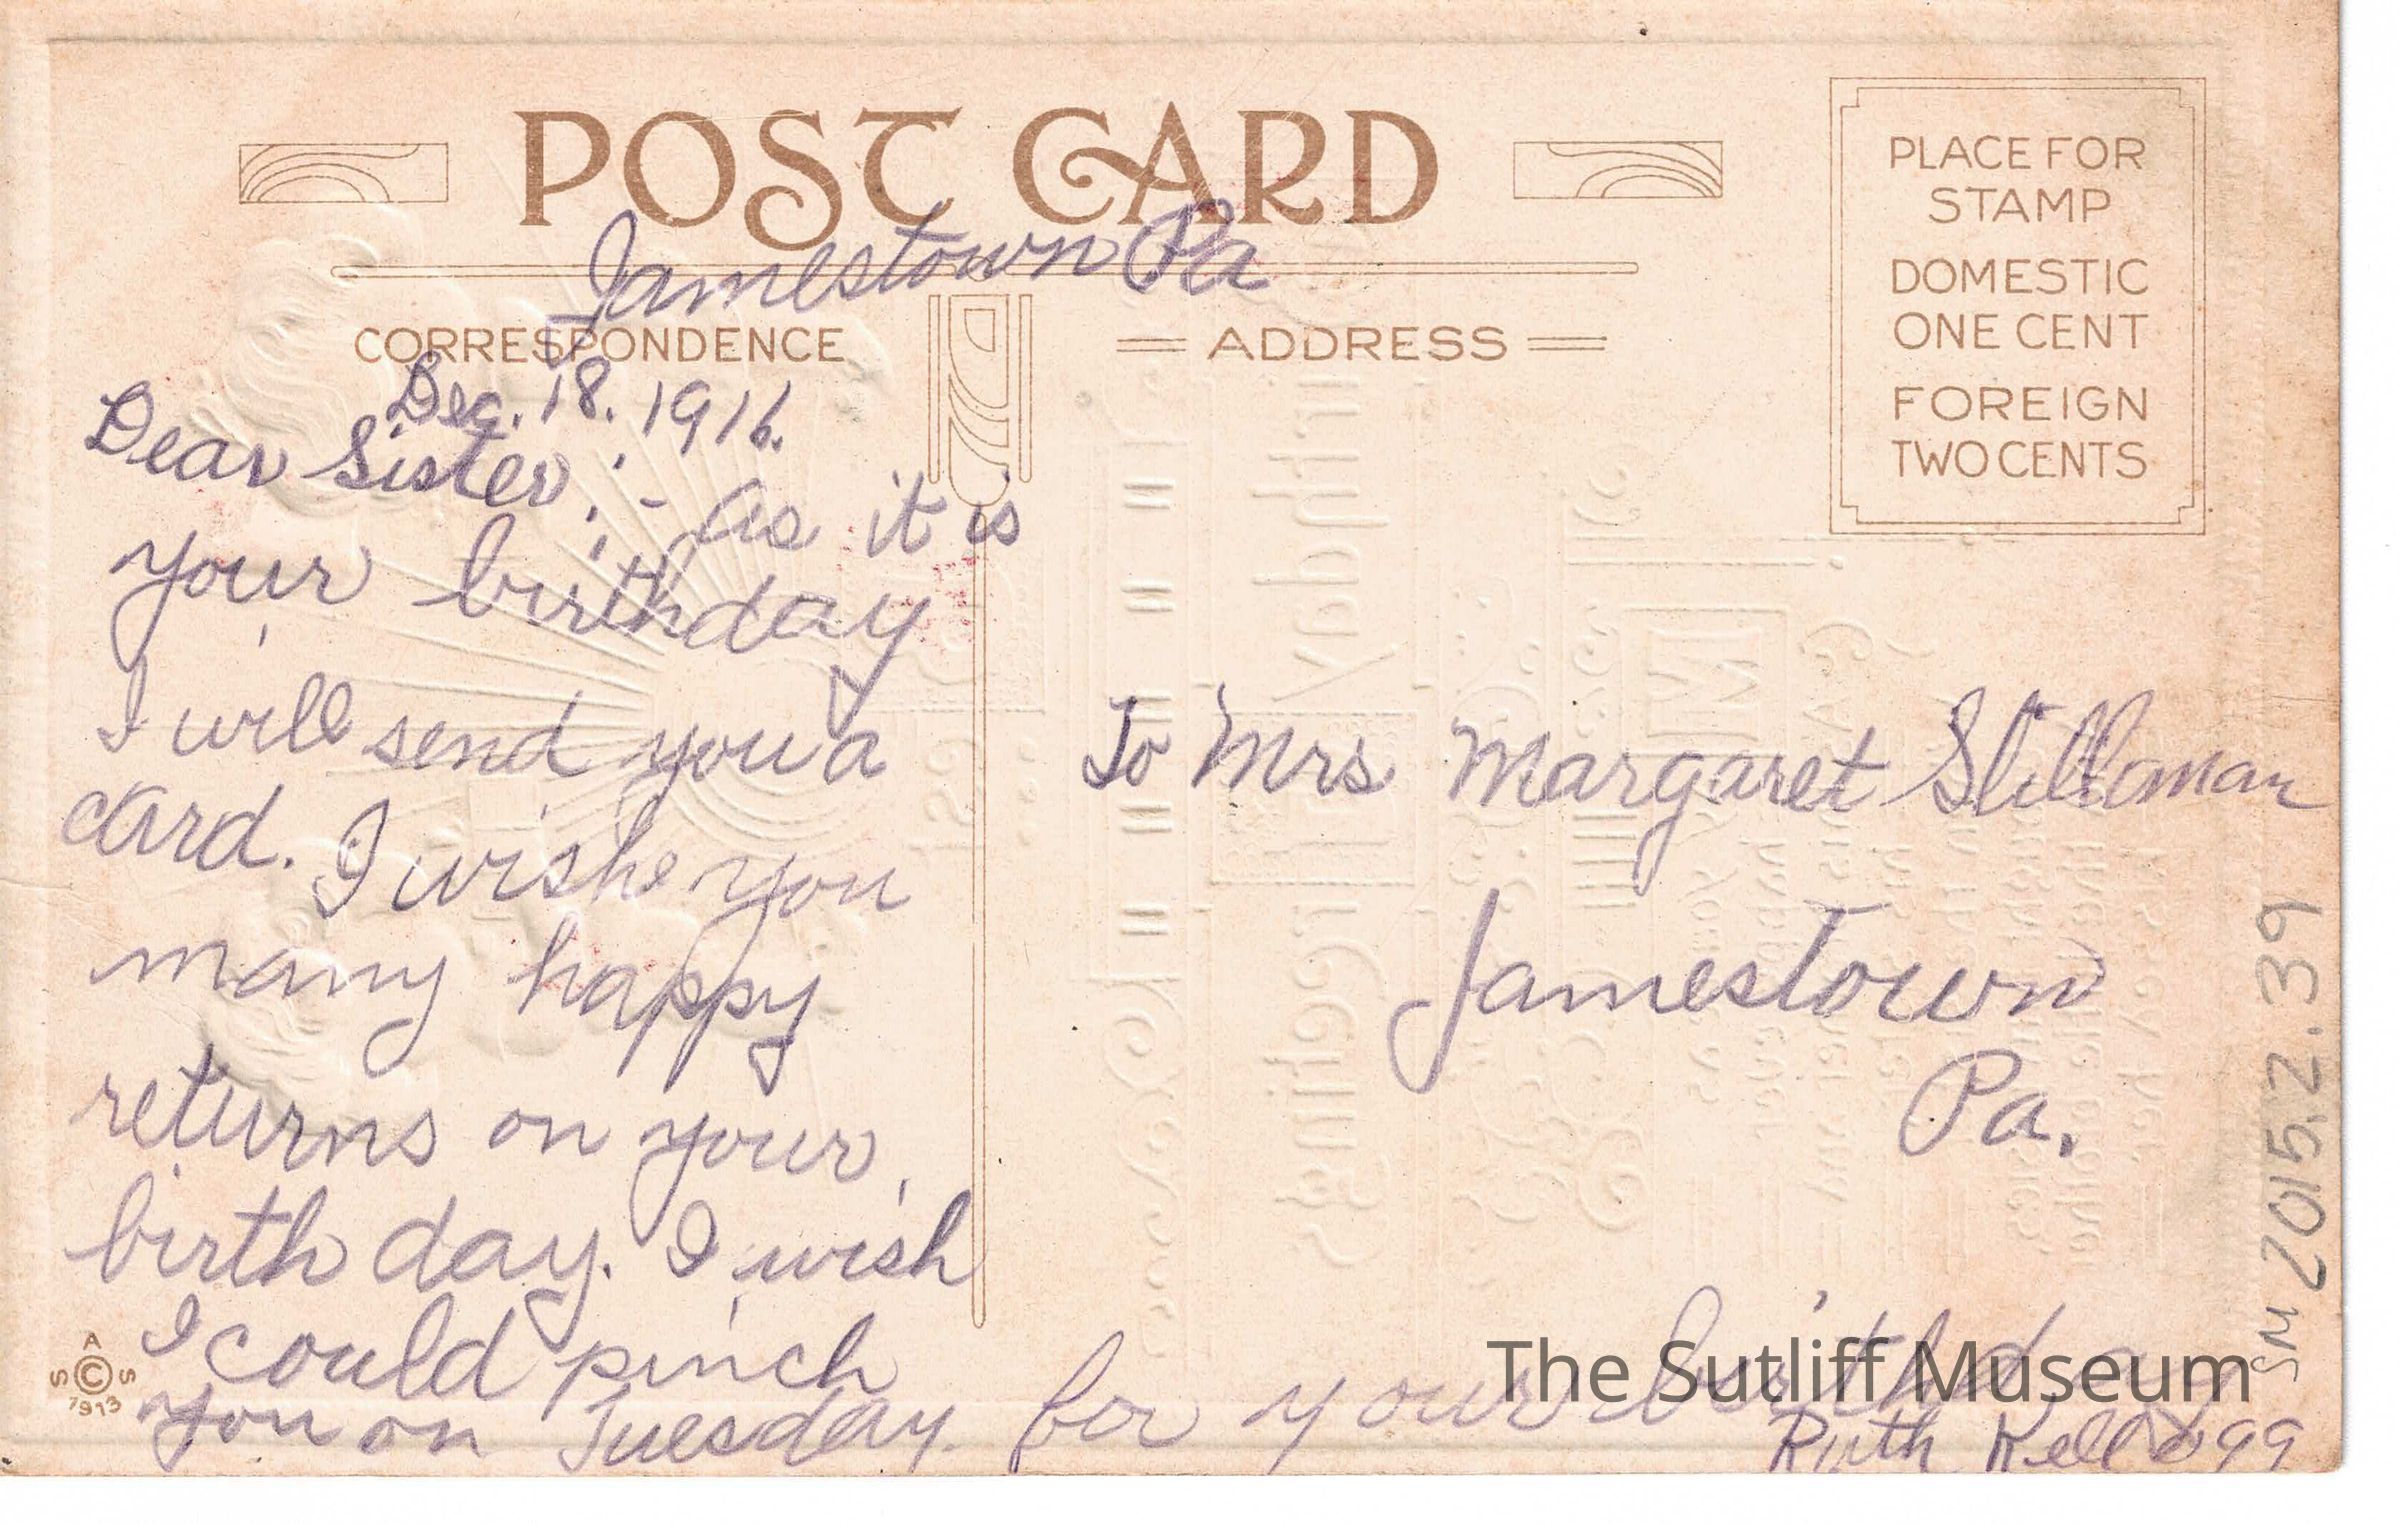 POST CARD
PLACE FOR
STAMP
DOMESTIC
ONE CENT
FOREIGN
TWO CENTS
Jamestown Pa
CORRESPONDENCE
ADDRESS
Dec. 18. 1916.
Dear Sister; - as it is
your birthday
I will send you a
card. I wishe you
many happy
returns on your
birth day. I wish
I could pinch
you on Tuesday. for your birthday
Ruth Kellogg
To Mrs Margaret Stillman
Jamestown
Pa.
A
S © S
1913
SM 2015.2.39
The Sutliff Museum